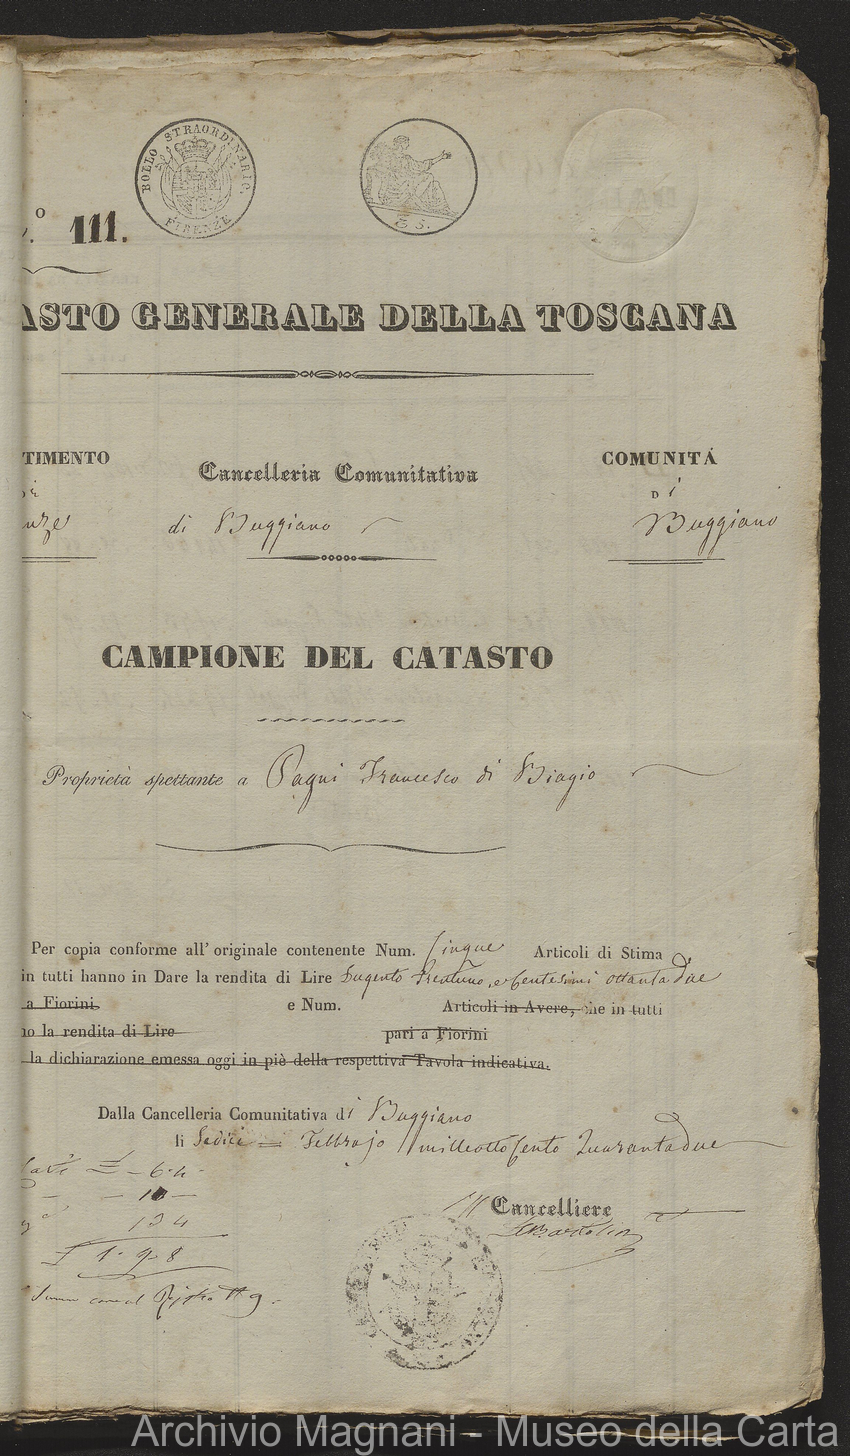 BOLLO STRAORDINARIO.
FIRENZE
.º 111.
ASTO GENERALE DELLA TOSCANA
TIMENTO
Cancelleria Comunitativa
COMUNITÀ
di
nze
di Buggiano
Buggiano
CAMPIONE DEL CATASTO
Proprietà spettante a Pagni Francesco di Biagio
Per copia conforme all' originale contenente Num. Cinque Articoli di Stima
in tutti hanno in Dare la rendita di Lire Dugento Trentuno, e Centesimi ottantadue
a Fiorini e Num. Articoli in Avere, che in tutti
no la rendita di Lire pari a Fiorini
la dichiarazione emessa oggi in piè della respettiva Tavola indicativa.
Dalla Cancelleria Comunitativa di Buggiano
li Sedici = Febbrajo milleottoCento Quarantadue
6. 4
10
13 4
£ 1. 9. 8
Il Cancelliere
Archivio Magnani - Museo della Carta